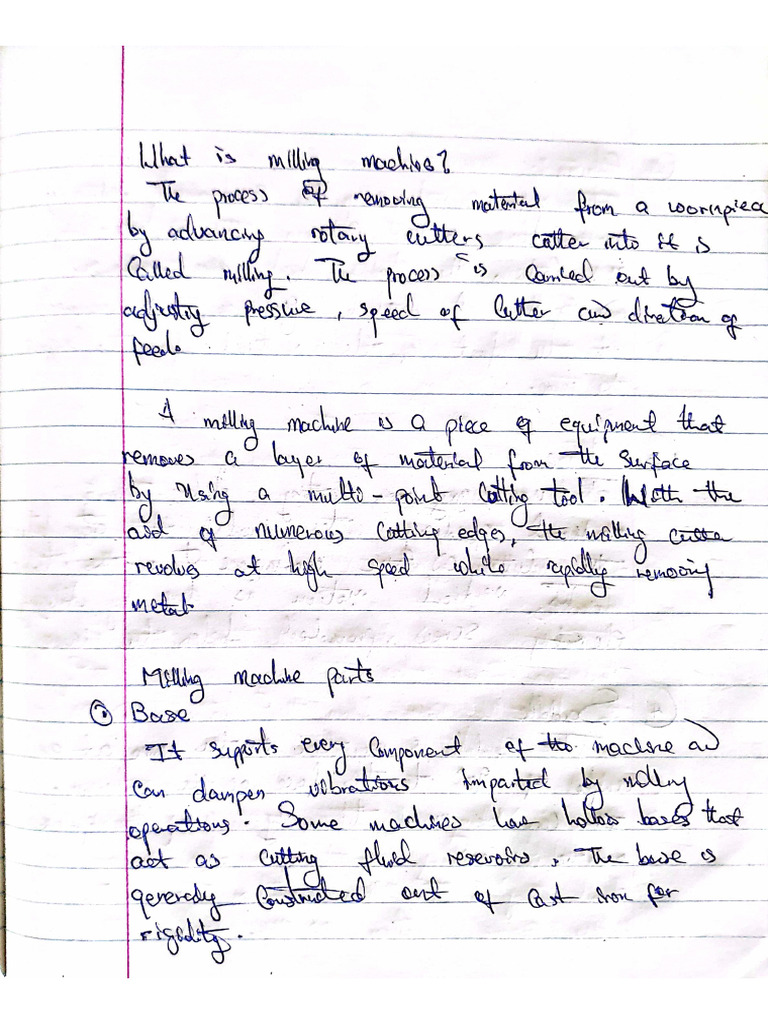 What is milling machine?
The process of removing material from a workpiece
by advancing rotary cutters cutter into it is
Called milling. The process is Carried out by
adjusting pressure, speed of Cutter and direction of
feed.
A milling machine is a piece of equipment that
removes a layer of material from the surface
by using a multi-point Cutting tool. With the
aid of numerous Cutting edges, the milling cutter
revolves at high speed while rapidly removing
metal.
Milling machine parts
Base
It supports every Component of the machine and
Can dampen vibrations imparted by milling
operations. Some machines have hollow bases that
act as Cutting fluid reservoirs. The base is
generally Constructed out of Cast iron for
rigidity.